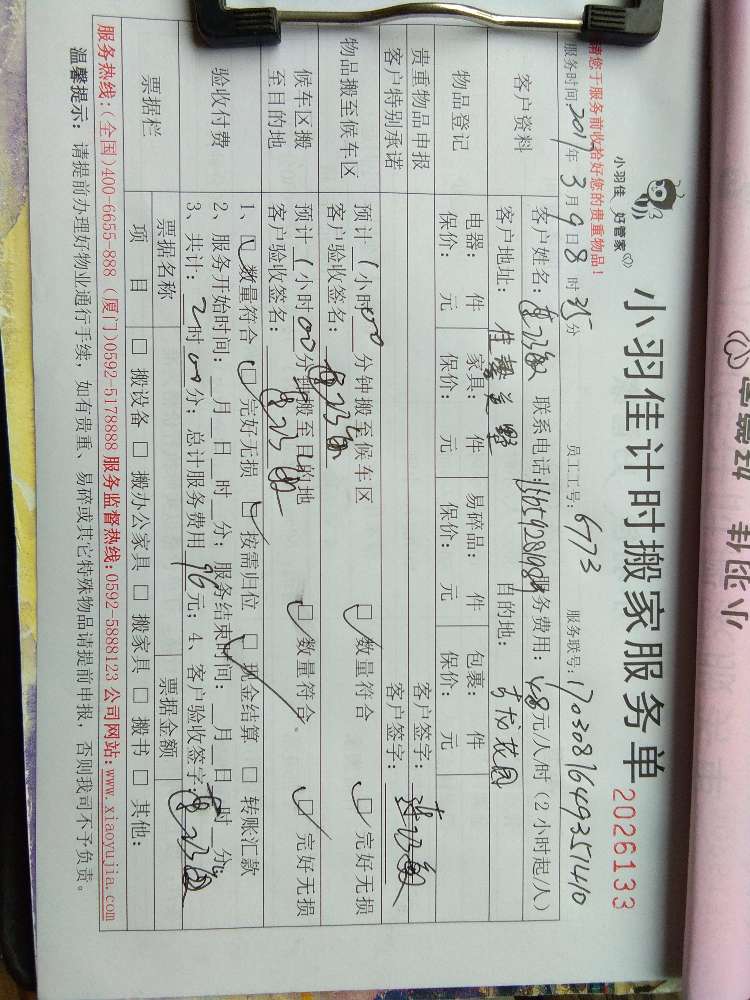 小羽佳 好管家
小羽佳计时搬家服务单
2026133
请您于服务前收拾好您的贵重物品!
员工工号: 6773 服务联号: 170308164935140
服务时间 2017年3月9日8时35分
客户资料
客户姓名: 联系电话: 服务费用: 48元/人/时(2小时起/人)
客户地址: 目的地: 花园
物品登记
电器: 件 家具: 件 易碎品: 件 包裹: 件
保价: 元 保价: 元 保价: 元 保价: 元
贵重物品申报 客户签字:
客户特别承诺 客户签字:
物品搬至候车区
预计1小时00分钟搬至候车区 数量符合 完好无损
客户验收签名:
候车区搬至目的地
预计1小时00分钟搬至目的地 数量符合 完好无损
客户验收签名:
验收付费
1、数量符合 完好无损 按需归位 现金结算 转账汇款
2、服务开始时间: 月 日 时 分; 服务结束时间: 月 日 时 分;
3、共计: 2时00分; 总计服务费用 96元; 4、客户验收签字:
票据栏
票据名称 票据金额
项目 搬设备 搬办公家具 搬家具 搬书 其他:
服务热线:(全国)400-6655-888 (厦门)0592-5178888 服务监督热线:0592-5888123 公司网站:www.xiaoyujia.com
温馨提示: 请提前办理好物业通行手续, 如有贵重、易碎或其它特殊物品请提前申报, 否则我司不予负责。